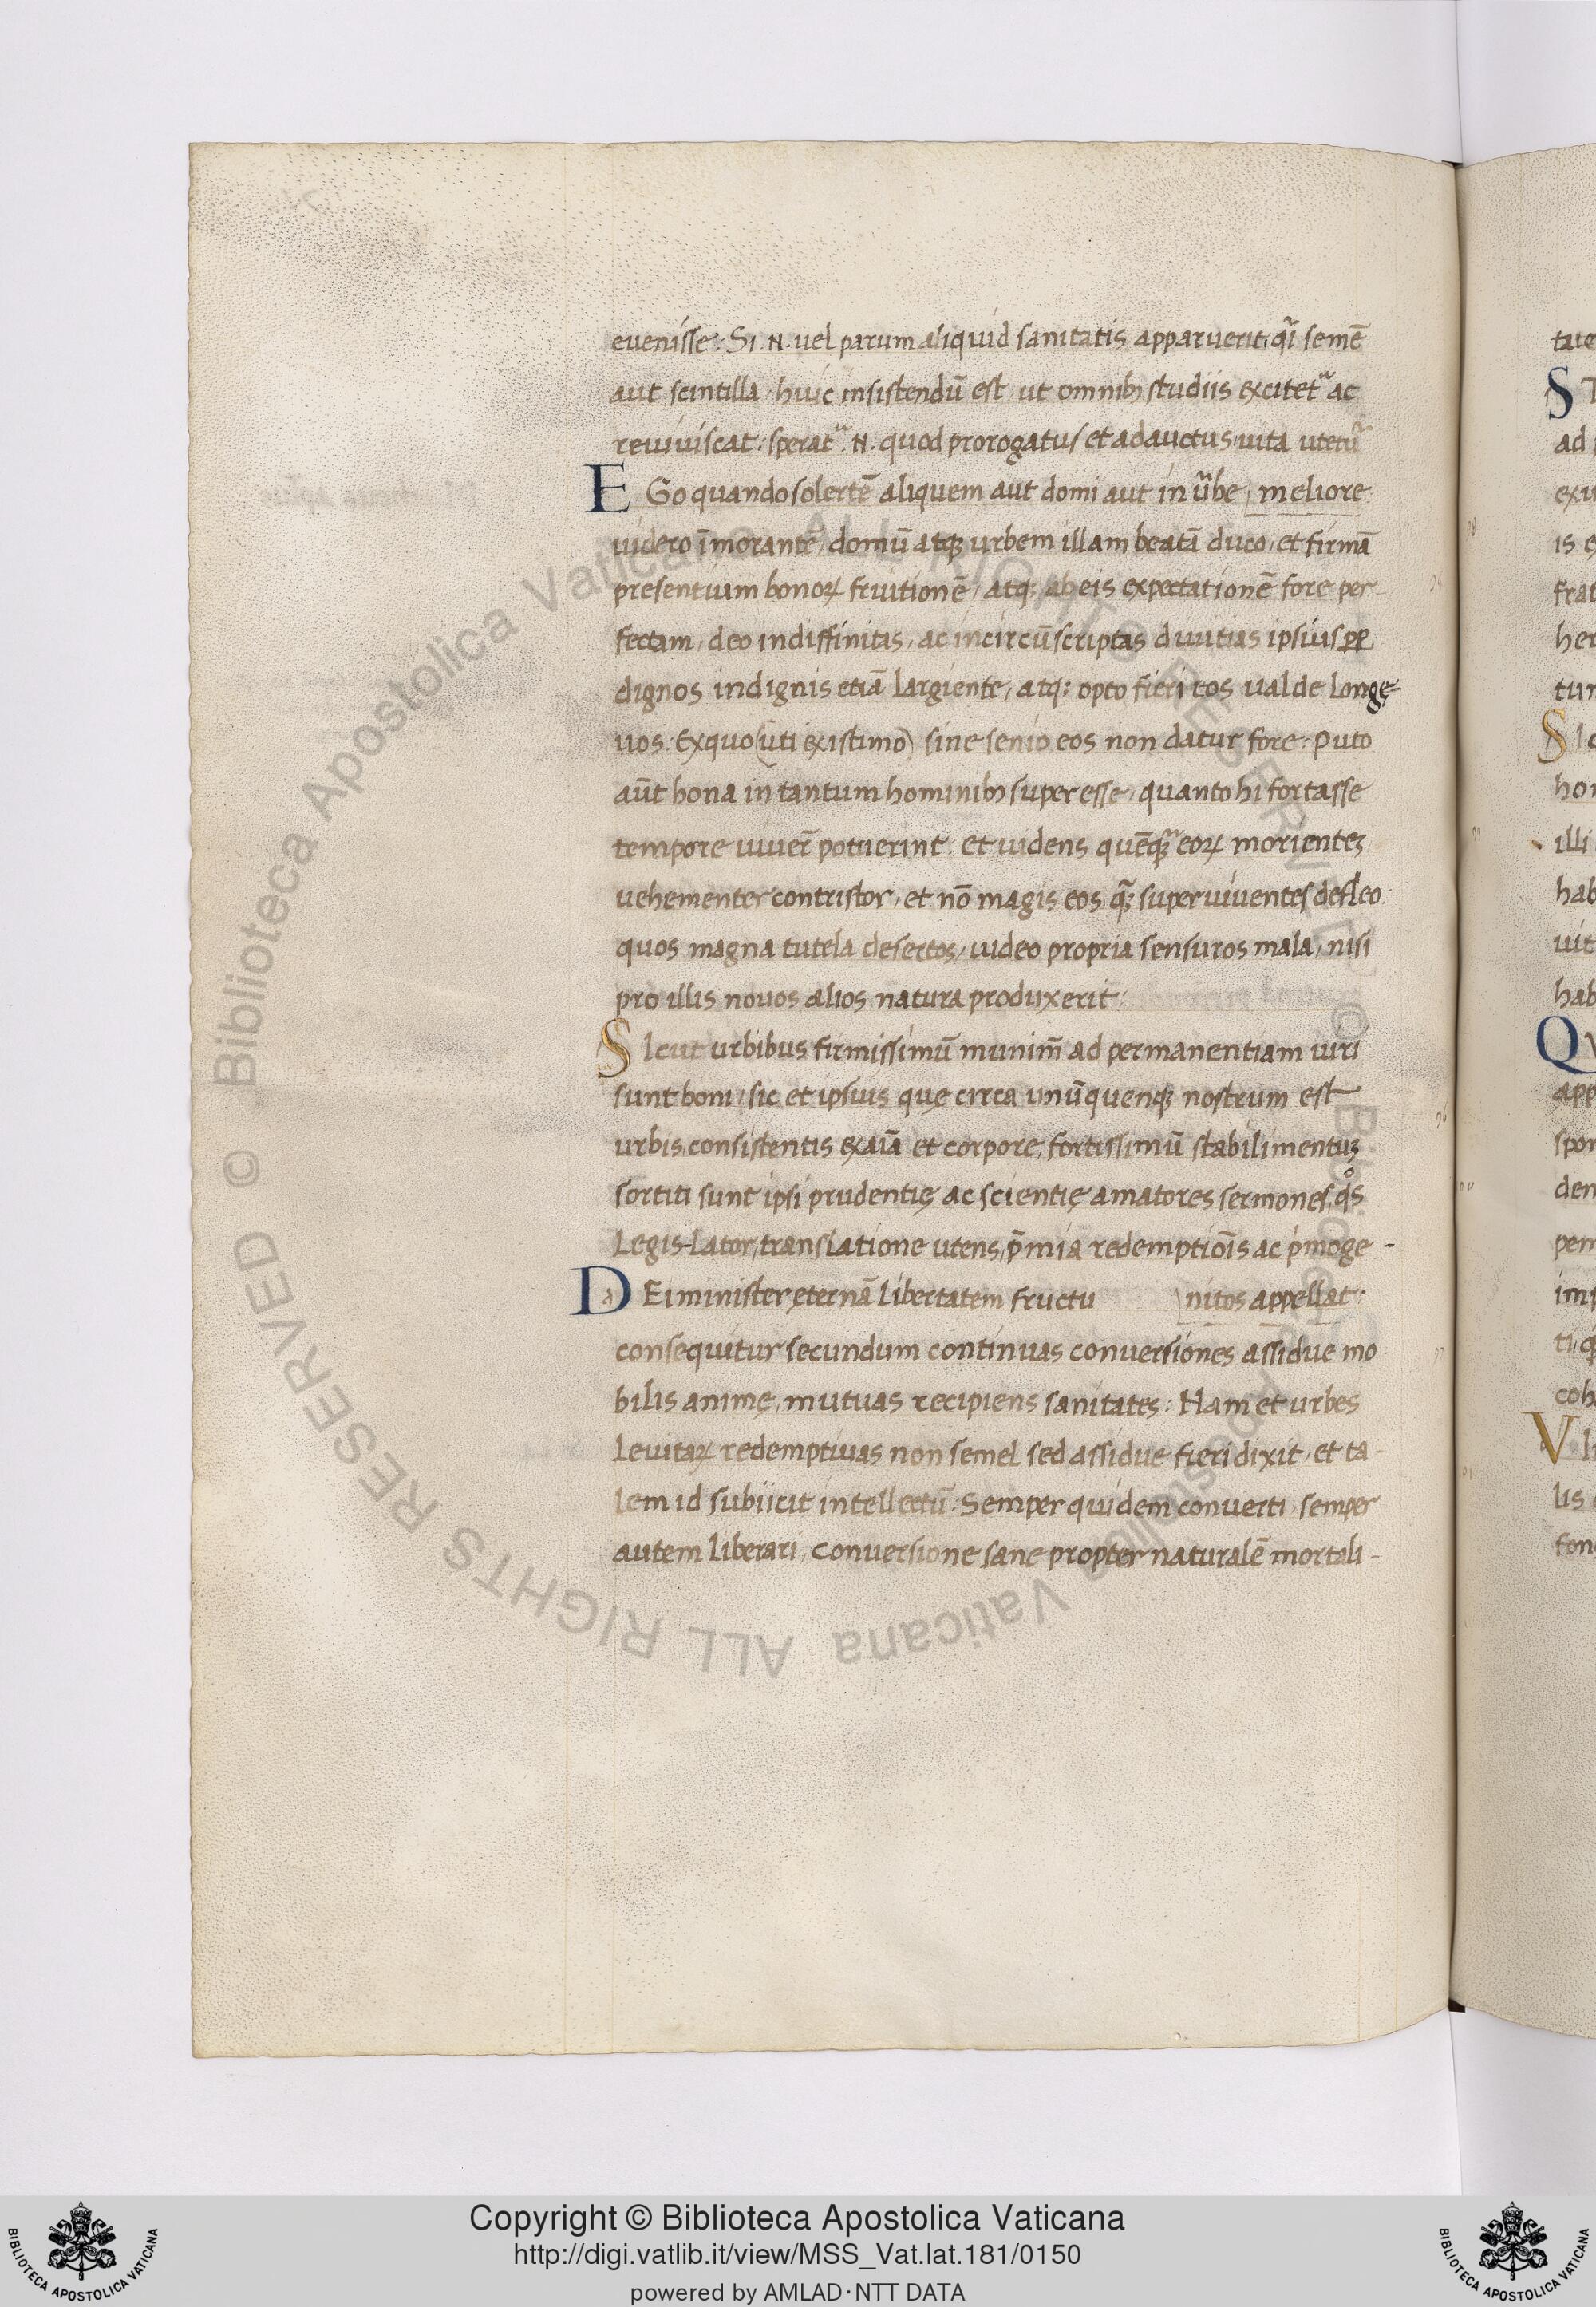 euenisse: Si .N. uel parum aliquid sanitatis apparuerit, qͣi semē
aut scintilla, huic insistendū est, ut omnibꝫ studiis excitetᷣ ac
reuiuiscat: speratᷣ .N. quod prorogatus et adauctus, uita utetᷣ
EGo quando solertē aliquem aut domi aut in uᷣbe, meliore
uidero īmorantē, domū atqꝫ urbem illam beatā duco, et firmā
presentium bonoꝝ fruitionē, atqꝫ ab eis expectationē fore per-
fectam, deo indiffinitas, ac incircūscriptas diuitias ipsius ꝓꝑ
dignos indignis etiā largiente, atqꝫ opto fieri eos ualde longę-
uos: Ex quo (uti existimo) sine senio eos non datur fore: Puto
aūt bona in tantum hominibꝫ superesse, quanto hi fortasse
tempore uiuer̄ potuerint: et uidens quēqꝫ eoꝝ morientez
uehementer contristor, et nō magis eos, qͣꝫ superuiuentes defleo
quos magna tutela desertos, uideo propria sensuros mala, nisi
pro illis nouos alios natura produxerit:
SIcut urbibus firmissimū munim̄ ad permanentiam uiri
sunt boni, sic et ipsius quę circa unūquenqꝫ nostrum est
urbis, consistentis ex aīa et corpore, fortissimū stabilimentuꝫ
sortiti sunt ipsi prudentię ac scientię amatores sermones, qͦs
Legis-lator, translatione utens, p̄mia redemptiōis ac pͥmoge-
DEi minister ęternā libertatem fructu nitos appellat:
consequitur secundum continuas conuersiones assidue mo
bilis animę, mutuas recipiens sanitates: Nam et urbes
Leuitaꝝ redemptiuas non semel sed assidue fieri dixit, et ta-
lem id subiicit intellectū: Semper quidem conuerti, semper
autem liberari, conuersione sane propter naturalē mortali-
Copyright © Biblioteca Apostolica Vaticana
http://digi.vatlib.it/view/MSS_Vat.lat.181/0150
powered by AMLAD·NTT DATA